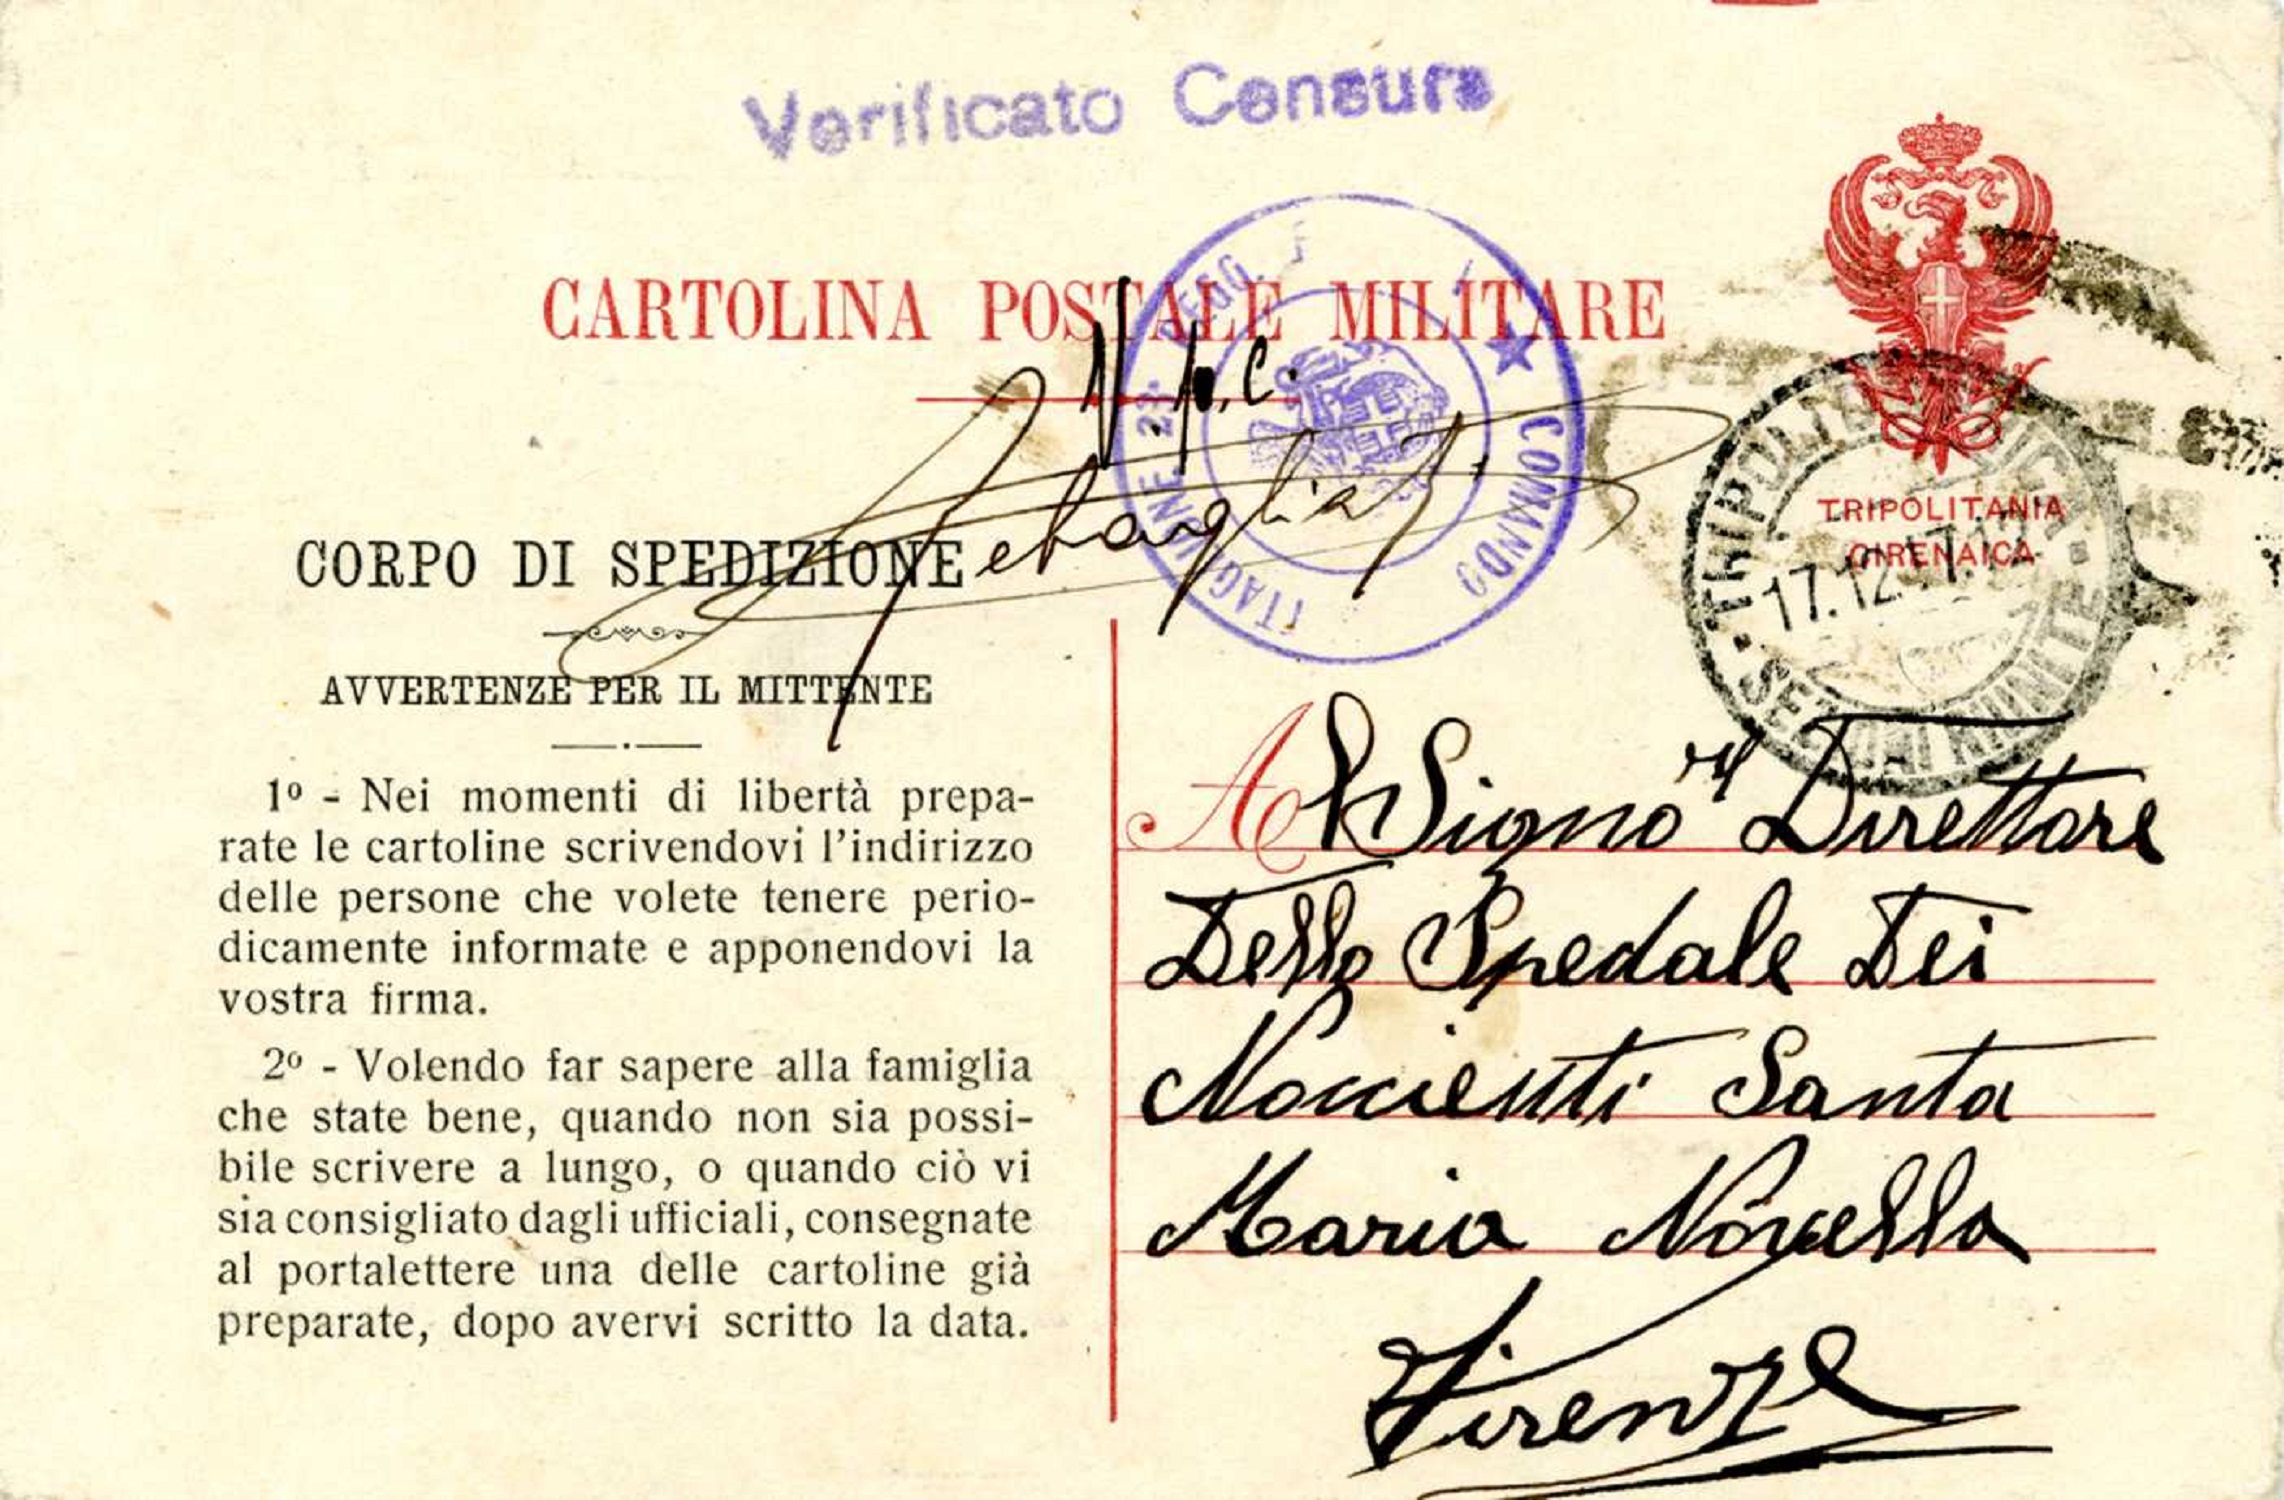 Verificato Censura
CARTOLINA POSTALE MILITARE
COMANDO
TTAGLIONE 23° REGG. F
V. p. C.
CORPO DI SPEDIZIONE
TRIPOLITANIA
CIRENAICA
TRIPOLI
17.12.17
AVVERTENZE PER IL MITTENTE
1º - Nei momenti di libertà prepa-
rate le cartoline scrivendovi l'indirizzo
delle persone che volete tenere perio-
dicamente informate e apponendovi la
vostra firma.
2º - Volendo far sapere alla famiglia
che state bene, quando non sia possi-
bile scrivere a lungo, o quando ciò vi
sia consigliato dagli ufficiali, consegnate
al portalettere una delle cartoline già
preparate, dopo avervi scritto la data.
Al Signor Direttore
Dello Spedale Dei
Noccienti Santa
Maria Novella
Firenze